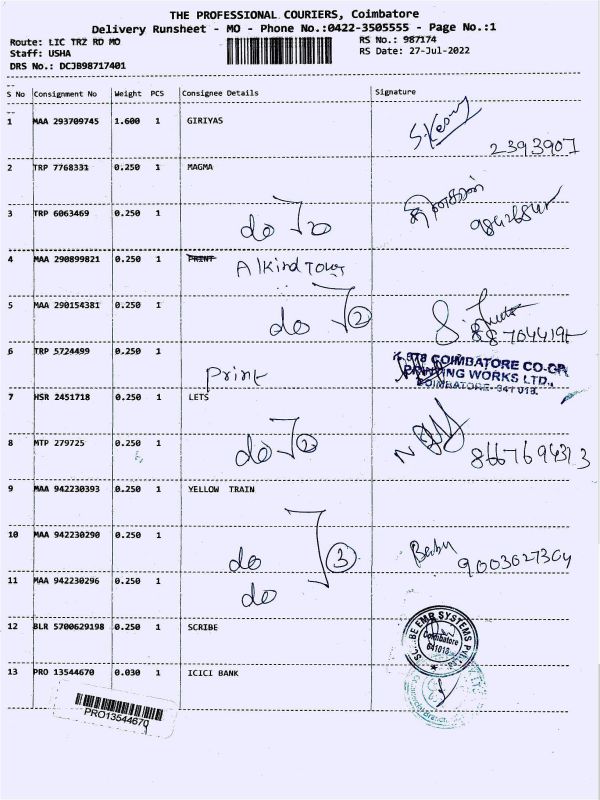 THE PROFESSIONAL COURIERS, Coimbatore
Delivery Runsheet - MO - Phone No.:0422-3505555 - Page No.:1
Route: LIC TRZ RD MO
RS No.: 987174
Staff: USHA
RS Date: 27-Jul-2022
DRS No.: DCJB98717401
S No Consignment No Weight PCS Consignee Details Signature
1 MAA 293709745 1.600 1 GIRIYAS
2393907
2 TRP 7768331 0.250 1 MAGMA
3 TRP 6063469 0.250 1 do
4 MAA 290899821 0.250 1 PRINT Alkind Tower
5 MAA 290154381 0.250 1 do 2
6 TRP 5724499 0.250 1 Print
COIMBATORE CO-OP
PRINTING WORKS LTD.,
COIMBATORE- 641 018.
7 HSR 2451718 0.250 1 LETS
8 MTP 279725 0.250 1 do 2
9 YELLOW TRAIN MAA 942230393 0.250 1
10 MAA 942230290 0.250 1 do 3
Babu
9003027304
11 MAA 942230296 0.250 1 do
12 BLR 5700629198 0.250 1 SCRIBE
BE EMR SYSTEMS PVT
Coimbatore
641018
13 PRO 13544670 0.030 1 ICICI BANK
PRO13544670